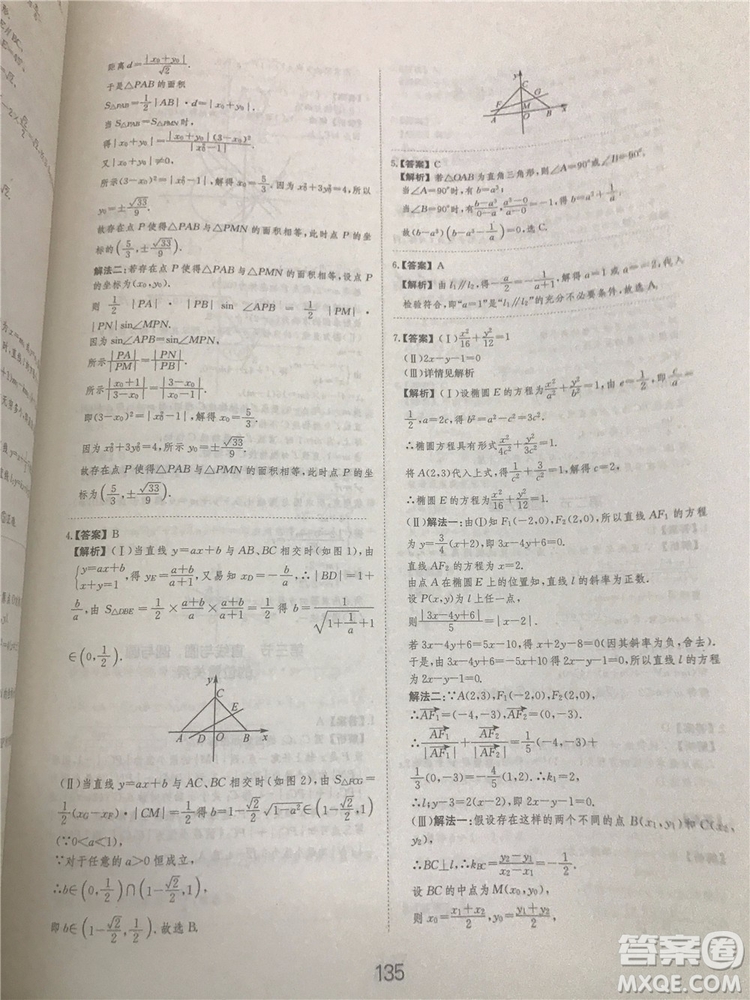 距离d=|x₀+y₀|/√2.
于是△PAB的面积
S△PAB=1/2|AB|·d=|x₀+y₀|.
当S△PAB=S△PMN时,
得|x₀+y₀|=|x₀+y₀|(3-x₀)²/|x₀²-1|.
又|x₀+y₀|≠0,
所示(3-x₀)²=|x₀²-1|,解得x₀=5/3.因为x₀²+3y₀²=4,所以
y₀=±√33/9.
故存在点P使得△PAB与△PMN的面积相等,此时点P的坐
标为(5/3,±√33/9).
解法二:若存在点P使得△PAB与△PMN的面积相等,设点P
的坐标为(x₀,y₀).
则 1/2|PA|·|PB|sin∠APB=1/2|PM|·
|PN|sin∠MPN.
因为sin∠APB=sin∠MPN,
所示|PA|/|PM|=|PN|/|PB|.
所示|x₀+1|/|3-x₀|=|3-x₀|/|x₀-1|.
即(3-x₀)²=|x₀²-1|,解得x₀=5/3.
因为x₀²+3y₀²=4,所以y₀=±√33/9.
故存在点P使得△PAB与△PMN的面积相等,此时点P的坐标
为(5/3,±√33/9).
4.【答案】B
【解析】(Ⅰ)当直线y=ax+b与AB、BC相交时(如图1),由
{y=ax+b x+y=1,得yE=(a+b)/(a+1),又易知xD=-b/a,∴|BD|=1+
b/a,由S△DBE=1/2×(a+b)/a×(a+b)/(a+1)=1/2得b=1/(√(1+1/a)+1)
∈(0,1/2).
y
C
E
A D O B x
(Ⅱ)当直线y=ax+b与AC、BC相交时(如图2),由S△FCG=
1/2(xG-xF)·|CM|=1/2得b=1-√2/2√(1-a²)∈(1-√2/2,1)
(∵0<a<1),
∵对于任意的a>0恒成立,
∴b∈(0,1/2)∩(1-√2/2,1),
即b∈(1-√2/2,1/2).故选B.
y
C
G
F M
A O B x
5.【答案】C
【解析】若△OAB为直角三角形,则∠A=90°或∠B=90°.
当∠A=90°时,有b=a³;
当∠B=90°时,有(b-a³)/(0-a)·(a³-0)/(a-0)=-1,得b=a³+1/a.
故(b-a³)(b-a³-1/a)=0,选C.
6.【答案】A
【解析】由l₁∥l₂,得-a/2=-1/(a+1),解得a=1或a=-2,代入
检验符合,即“a=1”是“l₁∥l₂”的充分不必要条件,故选A.
7.【答案】(Ⅰ)x²/16+y²/12=1
(Ⅱ)2x-y-1=0
(Ⅲ)详情见解析
【解析】(Ⅰ)设椭圆E的方程为x²/a²+y²/b²=1,由e=1/2,即c/a=
1/2,a=2c,得b²=a²-c²=3c².
∴椭圆方程具有形式x²/4c²+y²/3c²=1.
将A(2,3)代入上式,得1/c²+3/c²=1,解得c=2,
∴椭圆E的方程为x²/16+y²/12=1.
(Ⅱ)解法一:由(Ⅰ)知F₁(-2,0),F₂(2,0),所以直线AF₁的方程
为y=3/4(x+2),即3x-4y+6=0.
直线AF₂的方程为x=2.
由点A在椭圆E上的位置知,直线l的斜率为正数.
设P(x,y)为l上任一点,
则|3x-4y+6|/5=|x-2|.
若3x-4y+6=5x-10,得x+2y-8=0(因其斜率为负,舍去).
于是,由3x-4y+6=-5x+10,得2x-y-1=0,所以直线l的方程
为2x-y-1=0.
解法二:∵A(2,3),F₁(-2,0),F₂(2,0),
∴AF₁=(-4,-3),AF₂=(0,-3).
∴AF₁/|AF₁|+AF₂/|AF₂|=1/5(-4,-3)+
1/3(0,-3)=-4/5(1,2).∴k₁=2,
∴l₁y-3=2(x-2),即2x-y-1=0.
(Ⅲ)解法一:假设存在这样的两个不同的点B(x₁,y₁)和C(x₂,
y₂),
∴BC⊥l,∴kBC=(y₂-y₁)/(x₂-x₁)=-1/2.
设BC的中点为M(x₀,y₀),
则x₀=(x₁+x₂)/2,y₀=(y₁+y₂)/2,
135
答案圈
MXQE.COM